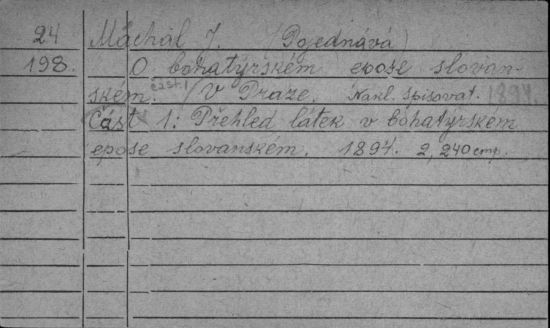 24 Máchal J. (Pojednává)
198. O bohatýrském epose slovan-
ském. část 1 / V Praze. Nakl. spisovat. 1894.
Část 1: Přehled látek v bohatýrském
epose slovanském. 1894. 2, 240 стр.